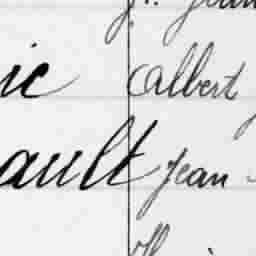 ic Albert
ault Jean